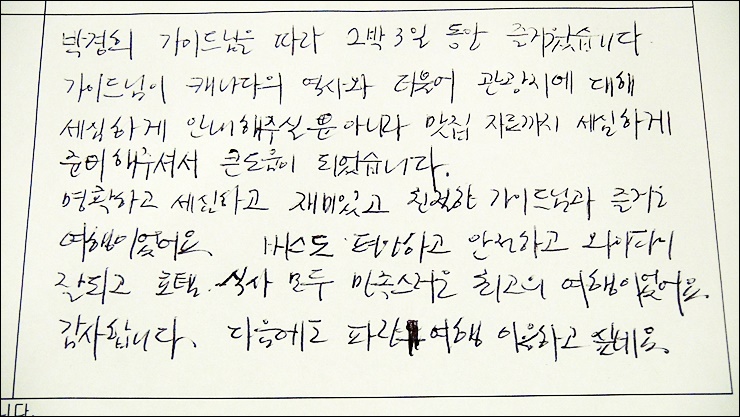 박경희 가이드님을 따라 2박3일 동안 즐거웠습니다
가이드님이 캐나다의 역사와 더불어 관광지에 대해
세심하게 안내해주실 뿐 아니라 맛집 자료까지 세심하게
준비해주셔서 큰도움이 되었습니다.
명확하고 세심하고 재미있고 친절한 가이드님과 즐거운
여행이었어요. 버스도 편안하고 안전하고 와이파이
잘되고 호텔. 식사 모두 만족스러운 최고의 여행이었어요.
감사합니다. 다음에도 파란 여행 이용하고 싶네요.
니다.